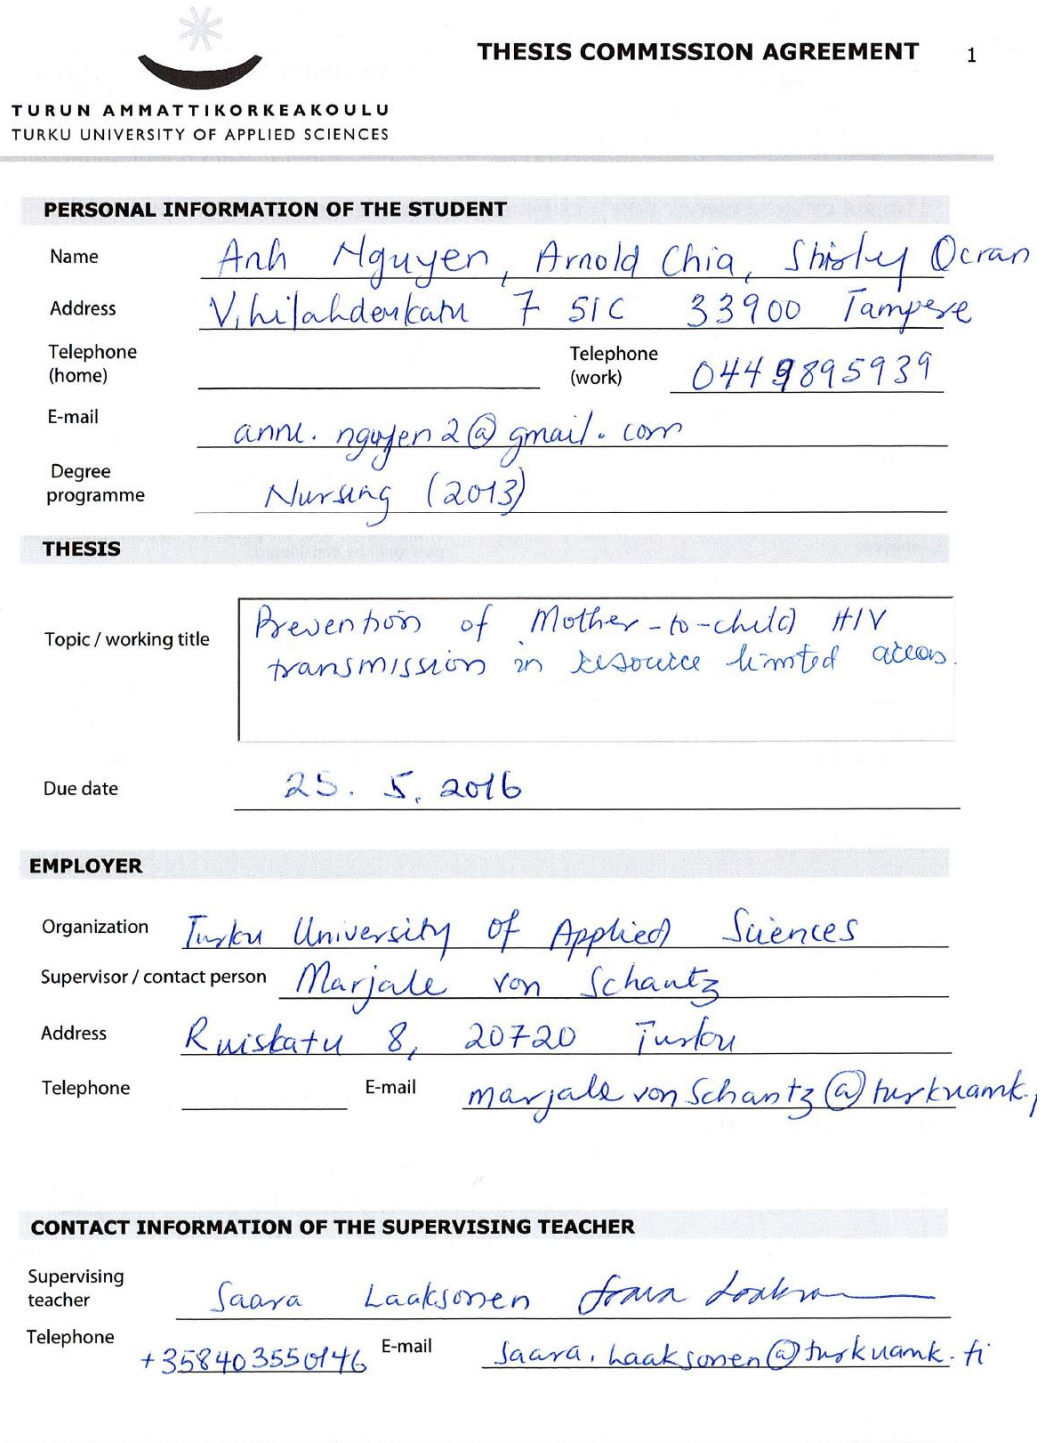 THESIS COMMISSION AGREEMENT 1
TURUN AMMATTIKORKEAKOULU
TURKU UNIVERSITY OF APPLIED SCIENCES
PERSONAL INFORMATION OF THE STUDENT
Name Anh Nguyen, Arnold Chia, Shirley Ocran
Address Vihilahdenkatu 7 51C 33900 Tampere
Telephone (home)
Telephone (work) 0449895939
E-mail anni.nguyen2@gmail.com
Degree programme Nursing (2013)
THESIS
Topic / working title Prevention of Mother-to-child HIV
transmission in resource limited areas.
Due date 25.5.2016
EMPLOYER
Organization Turku University of Applied Sciences
Supervisor / contact person Marjale von Schantz
Address Ruiskatu 8, 20720 Turku
Telephone E-mail marjale von Schantz@turkuamk.
CONTACT INFORMATION OF THE SUPERVISING TEACHER
Supervising teacher Saara Laaksonen
Telephone +358403550146 E-mail Saara.Laaksonen@turkuamk.fi